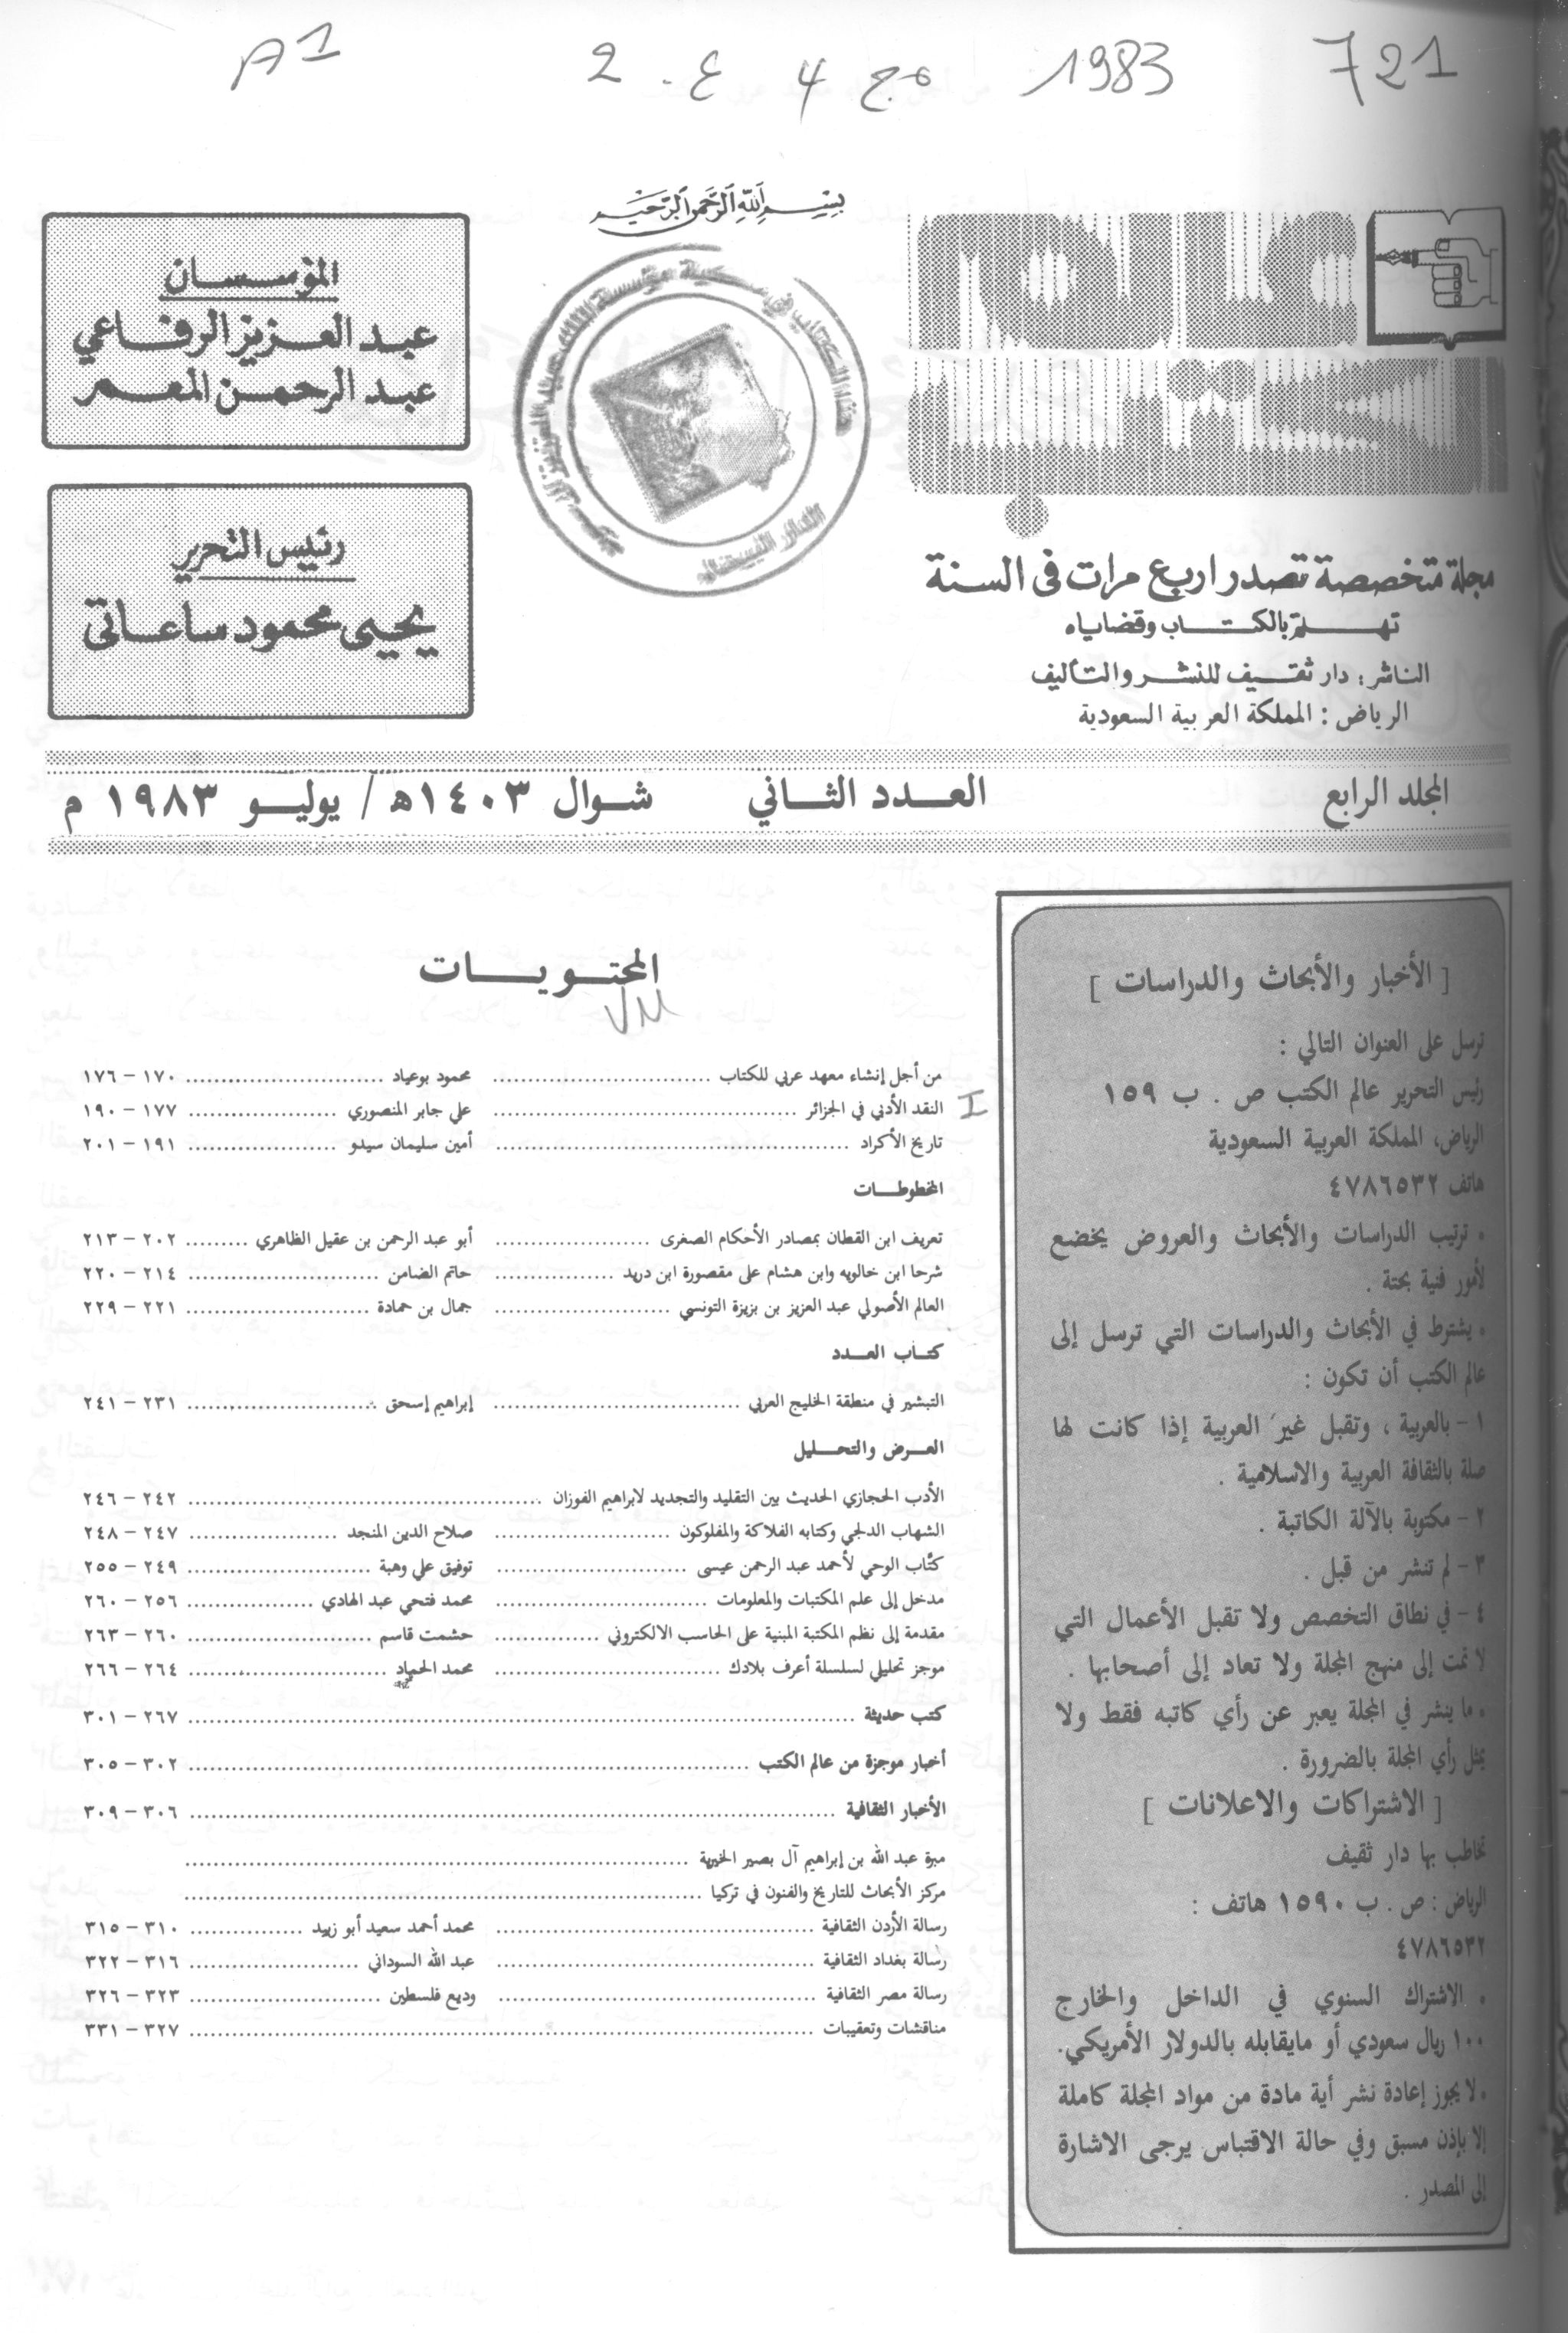 721 1983 مج 4 ع. 2 A1
بسم الله الرحمن الرحيم
عالم
الكتب
مجلة متخصصة تصدر اربع مرات فى السنة
تهتم بالكتاب وقضاياه
الناشر: دار ثقيف للنشر والتأليف
الرياض: المملكة العربية السعودية
المؤسسان
عبد العزيز الرفاعي
عبد الرحمن المعمر
رئيس التحرير
يحيى محمود ساعاتى
المجلد الرابع العدد الثاني شوال ١٤٠٣ه / يوليو ١٩٨٣ م
[ الأخبار والأبحاث والدراسات ]
ترسل على العنوان التالي :
رئيس التحرير عالم الكتب ص . ب ١٥٩
الرياض، المملكة العربية السعودية
هاتف ٤٧٨٦٥٣٢
• ترتيب الدراسات والأبحاث والعروض يخضع
لأمور فنية بحتة .
• يشترط في الأبحاث والدراسات التي ترسل إلى
عالم الكتب أن تكون :
١ - بالعربية ، وتقبل غير العربية إذا كانت لها
صلة بالثقافة العربية والاسلامية .
٢ - مكتوبة بالآلة الكاتبة .
٣ - لم تنشر من قبل .
٤ - في نطاق التخصص ولا تقبل الأعمال التي
لا تمت إلى منهج المجلة ولا تعاد إلى أصحابها .
• ما ينشر في المجلة يعبر عن رأي كاتبه فقط ولا
يمثل رأي المجلة بالضرورة .
[ الاشتراكات والاعلانات ]
تخاطب بها دار ثقيف
الرياض : ص . ب ١٥٩٠ هاتف :
٤٧٨٦٥٣٢
• الاشتراك السنوي في الداخل والخارج
١٠٠ ريال سعودي أو مايقابله بالدولار الأمريكي.
• لا يجوز إعادة نشر أية مادة من مواد المجلة كاملة
إلا بإذن مسبق وفي حالة الاقتباس يرجى الاشارة
إلى المصدر .
المحتويات
من أجل إنشاء معهد عربي للكتاب ........ محمود بوعياد ........ ١٧٠ - ١٧٦
النقد الأدبي في الجزائر ........ علي جابر المنصوري ........ ١٧٧ - ١٩٠
تاريخ الأكراد ........ أمين سليمان سيدو ........ ١٩١ - ٢٠١
المخطوطات
تعريف ابن القطان بمصادر الأحكام الصغرى ........ أبو عبد الرحمن بن عقيل الظاهري ........ ٢٠٢ - ٢١٣
شرحا ابن خالويه وابن هشام على مقصورة ابن دريد ........ حاتم الضامن ........ ٢١٤ - ٢٢٠
العالم الأصولي عبد العزيز بن بزيزة التونسي ........ جمال بن حمادة ........ ٢٢١ - ٢٢٩
كتاب العدد
التبشير في منطقة الخليج العربي ........ إبراهيم إسحق ........ ٢٣١ - ٢٤١
العرض والتحليل
الأدب الحجازي الحديث بين التقليد والتجديد لابراهيم الفوزان ........ ٢٤٢ - ٢٤٦
الشهاب الدلجي وكتابه الفلاكة والمفلوكون ........ صلاح الدين المنجد ........ ٢٤٧ - ٢٤٨
كتّاب الوحي لأحمد عبد الرحمن عيسى ........ توفيق علي وهبة ........ ٢٤٩ - ٢٥٥
مدخل إلى علم المكتبات والمعلومات ........ محمد فتحي عبد الهادي ........ ٢٥٦ - ٢٦٠
مقدمة إلى نظم المكتبة المبنية على الحاسب الالكتروني ........ حشمت قاسم ........ ٢٦٠ - ٢٦٣
موجز تحليلي لسلسلة أعرف بلادك ........ محمد الحماد ........ ٢٦٤ - ٢٦٦
كتب حديثة ........ ٢٦٧ - ٣٠١
أخبار موجزة من عالم الكتب ........ ٣٠٢ - ٣٠٥
الأخبار الثقافية ........ ٣٠٦ - ٣٠٩
مبرة عبد الله بن إبراهيم آل بصير الخيرية ........
مركز الأبحاث للتاريخ والفنون في تركيا ........
رسالة الأردن الثقافية ........ محمد أحمد سعيد أبو زبيد ........ ٣١٠ - ٣١٥
رسالة بغداد الثقافية ........ عبد الله السوداني ........ ٣١٦ - ٣٢٢
رسالة مصر الثقافية ........ وديع فلسطين ........ ٣٢٣ - ٣٢٦
مناقشات وتعقيبات ........ ٣٢٧ - ٣٣١